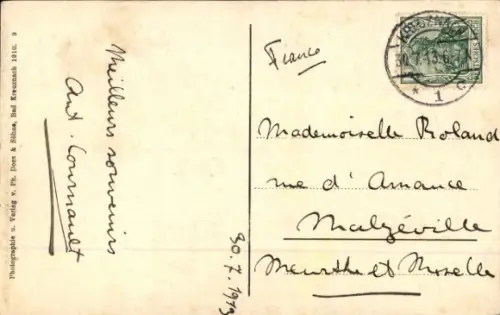 Photographie u. Verlag v. Ph. Doos & Söhne, Bad Kreuznach 1910. 9
Meilleurs souvenirs
Ant. Cournault
30.7.1913
Franco
30.7.13.6
* 1 c
Mademoiselle Roland
rue d'Amance
Malzéville
Meurthe et Moselle